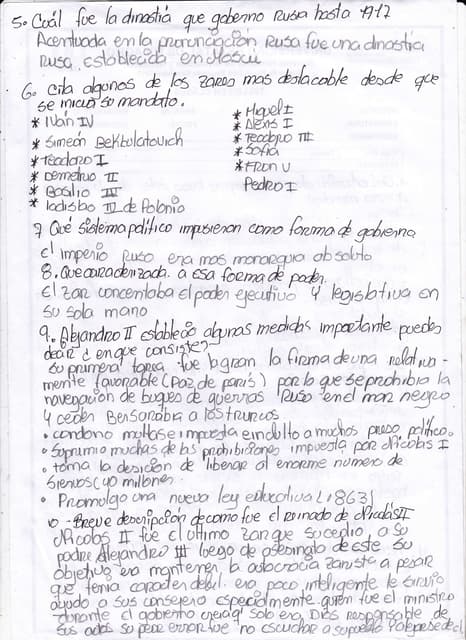 5. Cuál fue la dinastia que goberno Rusia hasta 1917
Acentuada en la pronunciación Rusa fue una dinastia
Rusa, establecida en Moscú
6. cita algunos de los zares mas destacable desde que
se inicio su mandato.
* Iván IV
* Simeón Bekbulatovich
* Teodoro I
* Demetrio II
* Basilio IV
* Ladislao IV de Polonio
* Miguel I
* Alexis I
* Teodoro III
* Sofia
* Iván V
Pedro I
7 Qué sistema politico impusieron como forma de gobierno
El imperio Ruso era mas monarquia absoluta
8. Que caracterizada a esa forma de poder.
El zar concentaba el poder ejecutivo y legislativa en
su sola mano
9. Alejandro II establecio algunas medidas importante puedes
decir ¿ en que consiste?
su primera tarea fue logran la firma de una relativa-
mente favorable (Paz de parís) por lo que se prohibia la
navegacion de buques de guerras Ruso en el mar negro
y ceder Bersarabia a los truncos
• condono multas e impuesta e indulto a muchos preso politico.
• suprimio muchas de las prohibiciones impuesta por Nicolas I
• toma la desicion de liberar al enorme numero de
siervos (40 millones
• Promulgo una nueva ley educativa (1863)
10 - Breve descripción de como fue el reinado de Nicolas II
Nicolas II fue el ultimo zar que sucedio a su
padre Alejandro III luego de asesinato de este su
objetivo era mantener la autocracia zarista a pesar
que tenia caracter debil. era poco inteligente le sirvio
ayudo a sus consejero especialmente quien fue el ministro
durante el gobierno creia q' solo era Dios responsable de
sus actos su peor error fue no escuchar a